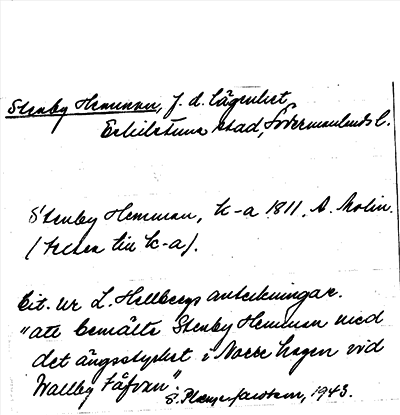 Stenby Hemman, f. d. lägenhet,
Eskilstuna stad, Södermanlands l.
Stenby Hemman, k-a 1811, A. Molin.
(texten till k-a).
Cit. ur L. Hellbergs anteckningar.
"att bemälte Stenby Hemman med
det ängsstycket i Norre hagen vid
Wallby Fåfvan".
S. 1943.